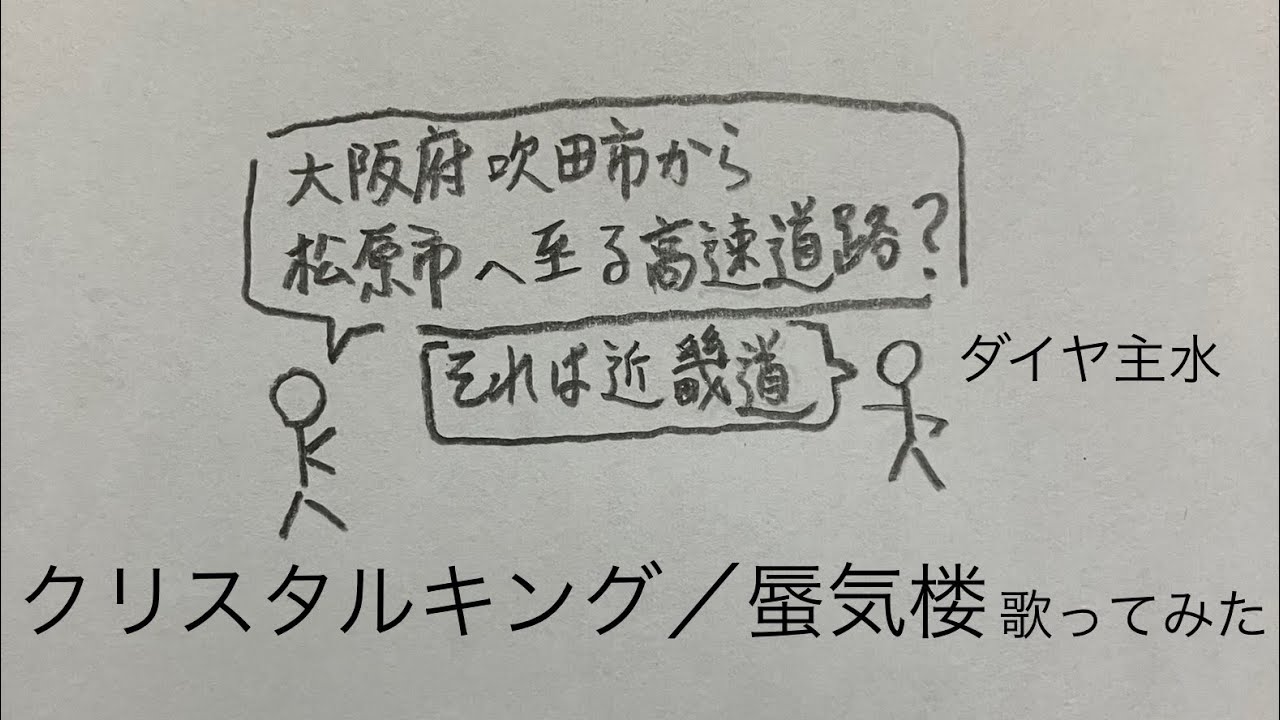 大阪府吹田市から
松原市へ至る高速道路?
それは近畿道
ダイヤ主水
クリスタルキング／蜃気楼 歌ってみた